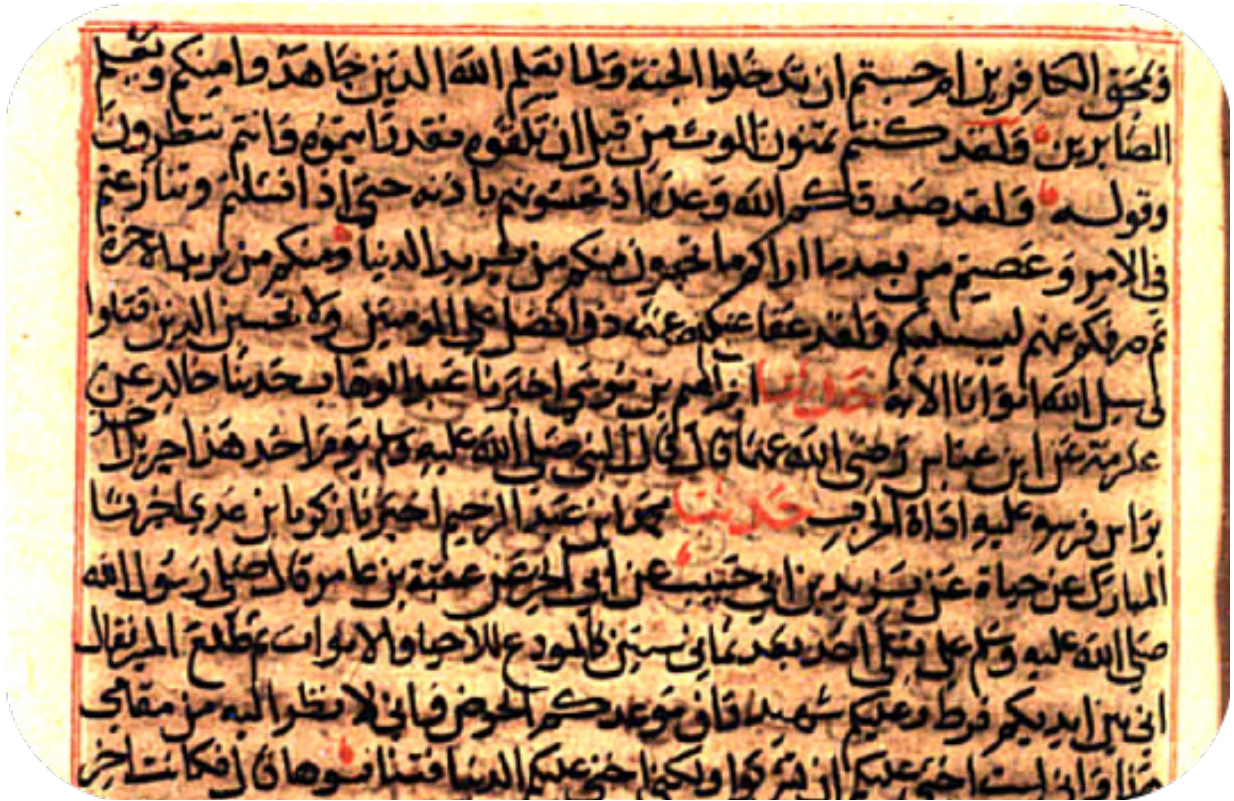 ويمحق الكافرين ام حسبتم ان تدخلوا الجنة ولما يعلم الله الذين جاهدوا منكم ويعلم
الصابرين ولقد كنتم تمنون الموت من قبل ان تلقوه فقد رايتموه وانتم تنظرون
وقوله ولقد صدقكم الله وعده اذ تحسونهم باذنه حتى اذا فشلتم وتنازعتم
في الامر وعصيتم من بعد ما اراكم ما تحبون منكم من يريد الدنيا ومنكم من يريد الاخرة
ثم صرفكم عنهم ليبتليكم ولقد عفا عنكم والله ذو فضل على المومنين ولا تحسبن الذين قتلوا
في سبيل الله امواتا الاية حدثنا ابراهيم بن موسى اخبرنا عبد الوهاب حدثنا خالد عن
عكرمة عن ابن عباس رضي الله عنهما قال قال النبي صلى الله عليه وسلم يوم احد هذا جبريل اخذ
براس فرسه عليه اداة الحرب حدثنا محمد بن عبد الرحيم اخبرنا زكريا بن عدي اخبرنا
المبارك عن حياة عن يزيد بن ابي حبيب عن ابي الخير عن عقبة بن عامر قال صلى رسول الله
صلى الله عليه وسلم على قتلى احد بعد ثماني سنين كالمودع للاحيا والاموات ثم طلع المنبر فقال
اني بين ايديكم فرط وعليكم شهيد وان موعدكم الحوض واني لانظر اليه من مقامي
هذا واني لست اخشى عليكم ان تشركوا ولكني اخشى عليكم الدنيا ان تنافسوها قال فكانت اخر